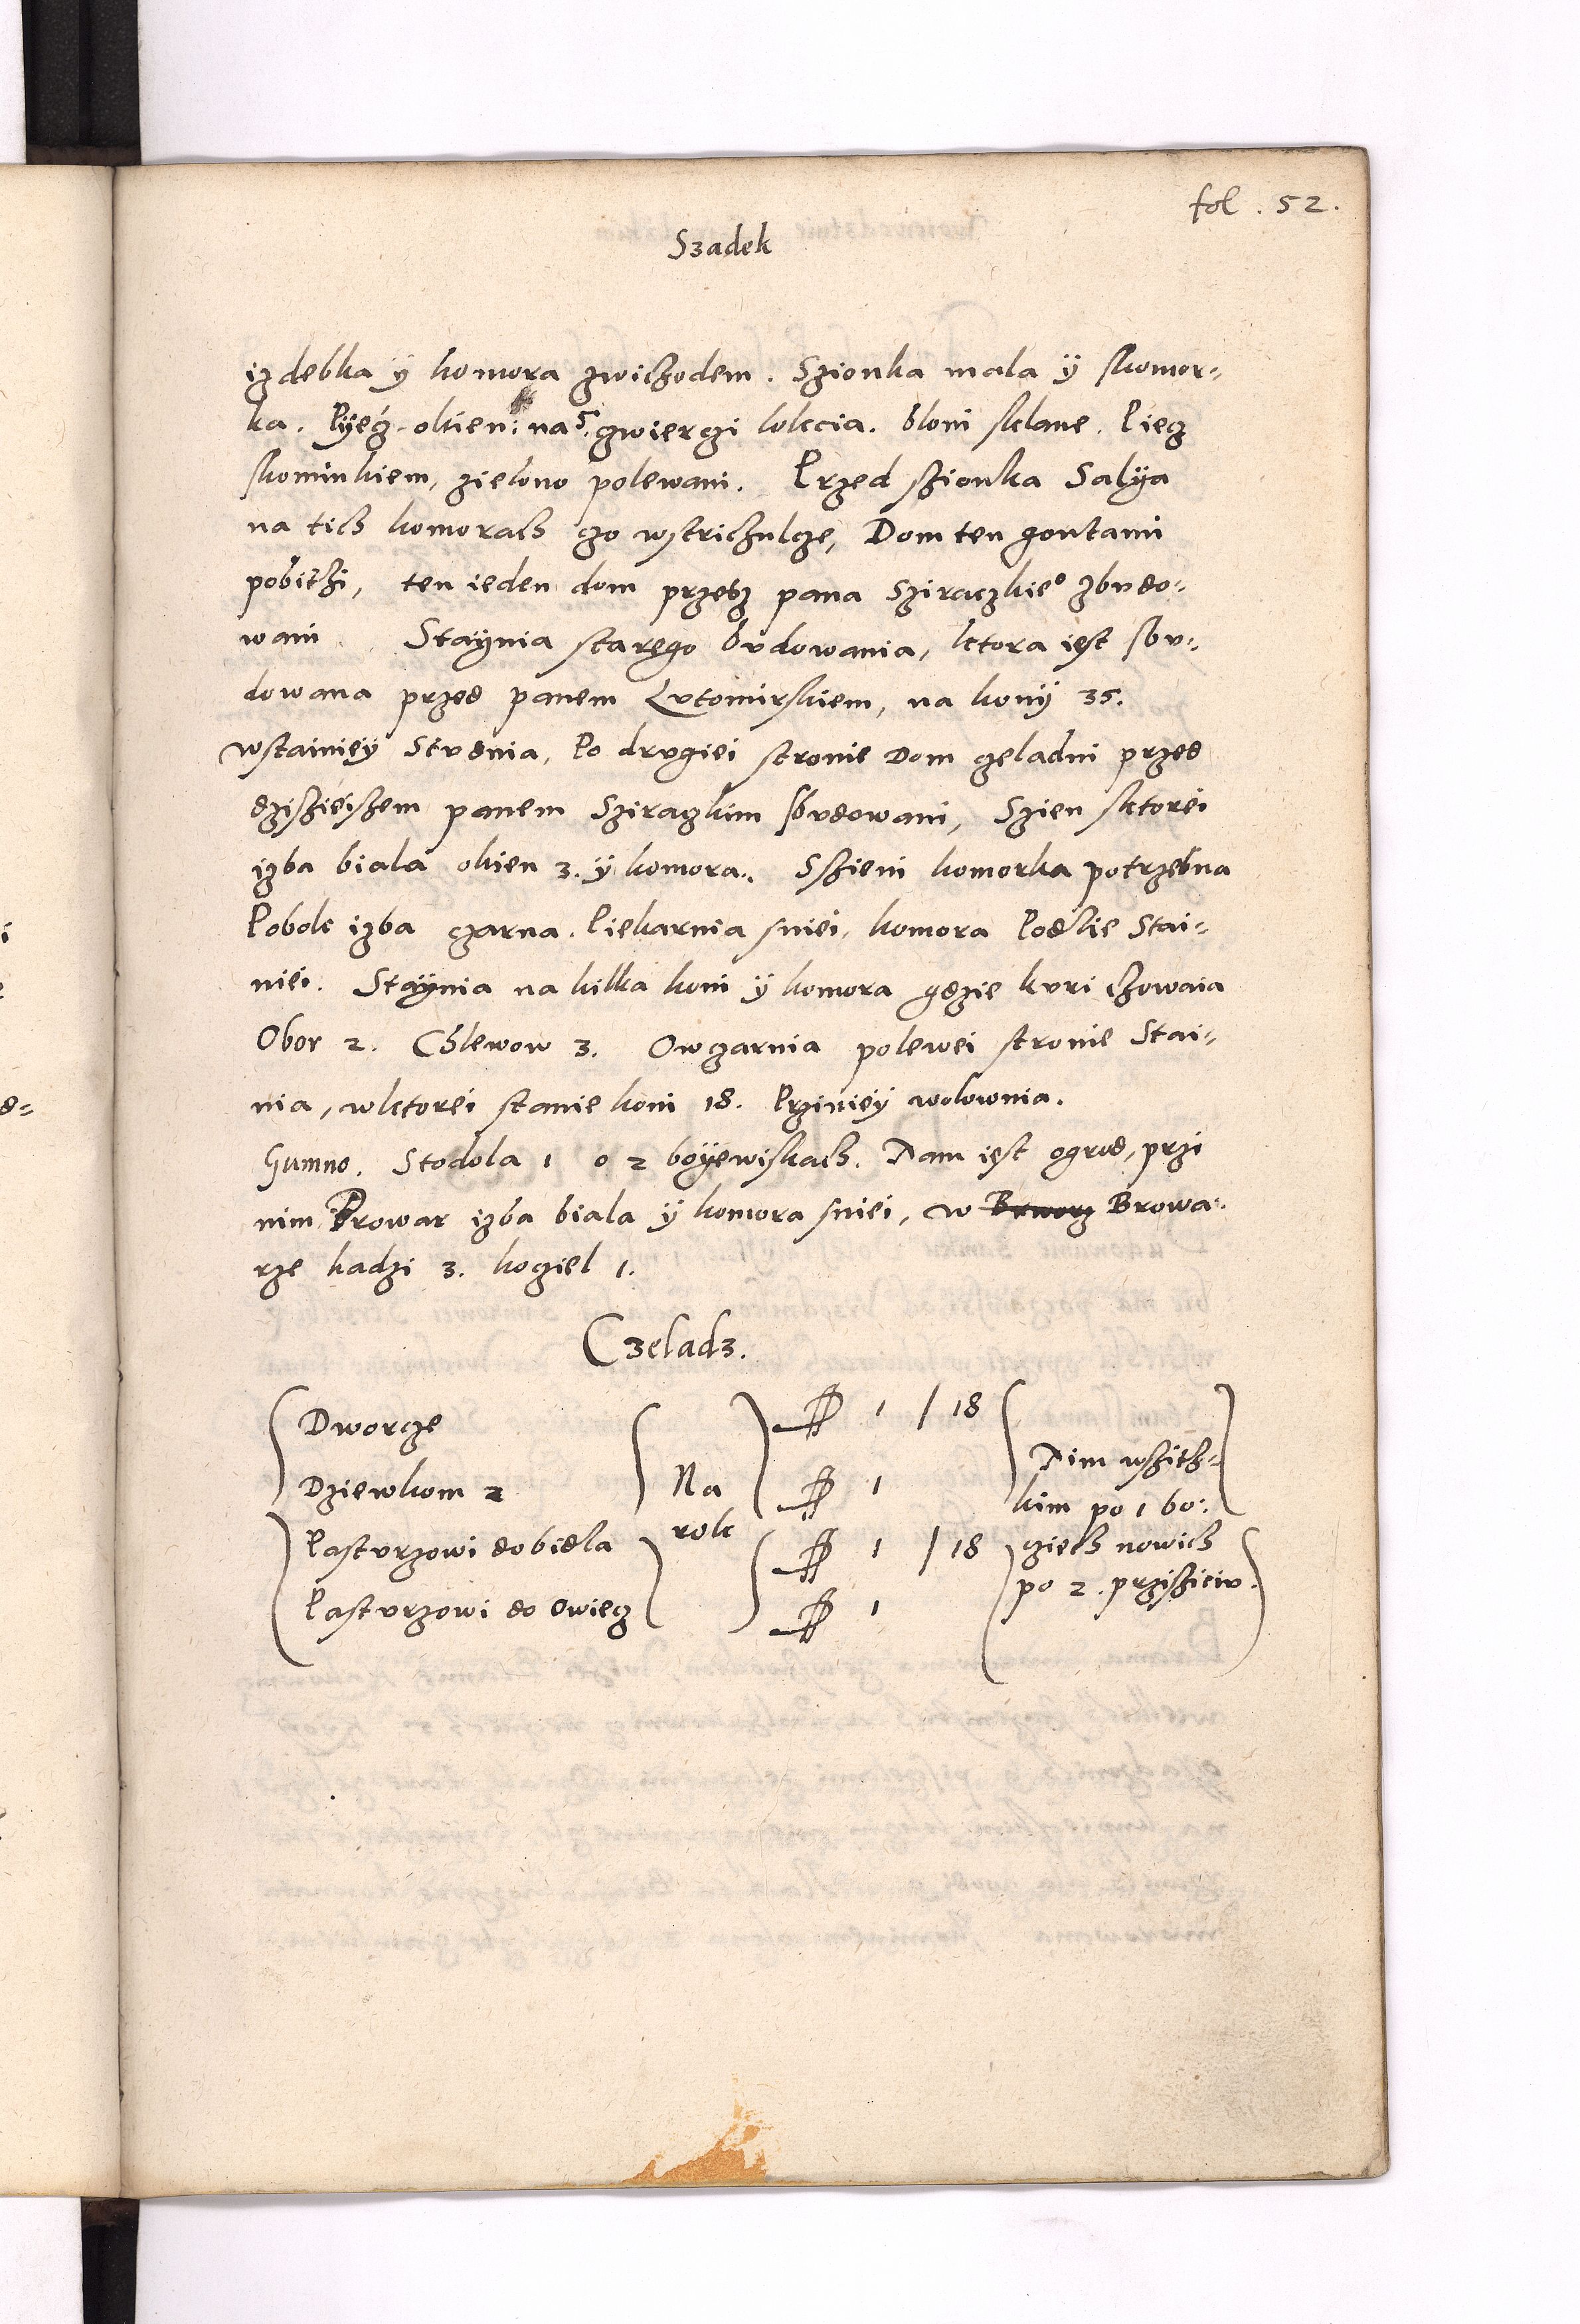 fol. 52.
Szadek
izdebka ÿ komora zwichodem. Szionka mala ÿ skomor-
ka. Pÿeć okien: na 5. czwierczi lokcia. bloni sklane. Piecz
skominkiem, zielono polewani. Przed szionka Salÿa
na tich komorach czo wstrichulcze, Dom ten gontami
pobithi, ten ieden dom przetz pana Sziraczkie° zbudo-
wani Staÿnia starego budowania, ktora iest sbu-
dowana przed panem Lutomirskiem, na konÿ 35.
wstainieÿ Studnia, Po drugiei stronie Dom czeladni przed
dziszieiszem panem Sziraczkim sbudowani, Szien sktorei
izba biala okien 3. ÿ komora. Sszieni komorka potrzebna
Pobok izba czarna. Piekarnia sniei, komora Podlie Stai-
niei. Staÿnia na kilka koni ÿ komora gdzie kuri chowaia
Obor 2. Chlewow 3. Owczarnia polewei stronie Stai-
nia, wktorei stanie koni 18. Prznieÿ wolownia.
Gumno. Stodola 1 o 2 boÿewiskach. Tam iest ogrod, przi
nim Browar izba biala ÿ komora sniei, w Browa-
rze kadzi 3. koziel 1.
Czeladz.
Dworcze 1 / 18
Dziewkom 2 Na 1 Tim wszith-
kim po 1 bo-
Pasturzowi do bidla rok 1 / 18 cziech nowich
Pasturzowi do Owiecz 1 po 2. prziszciew.